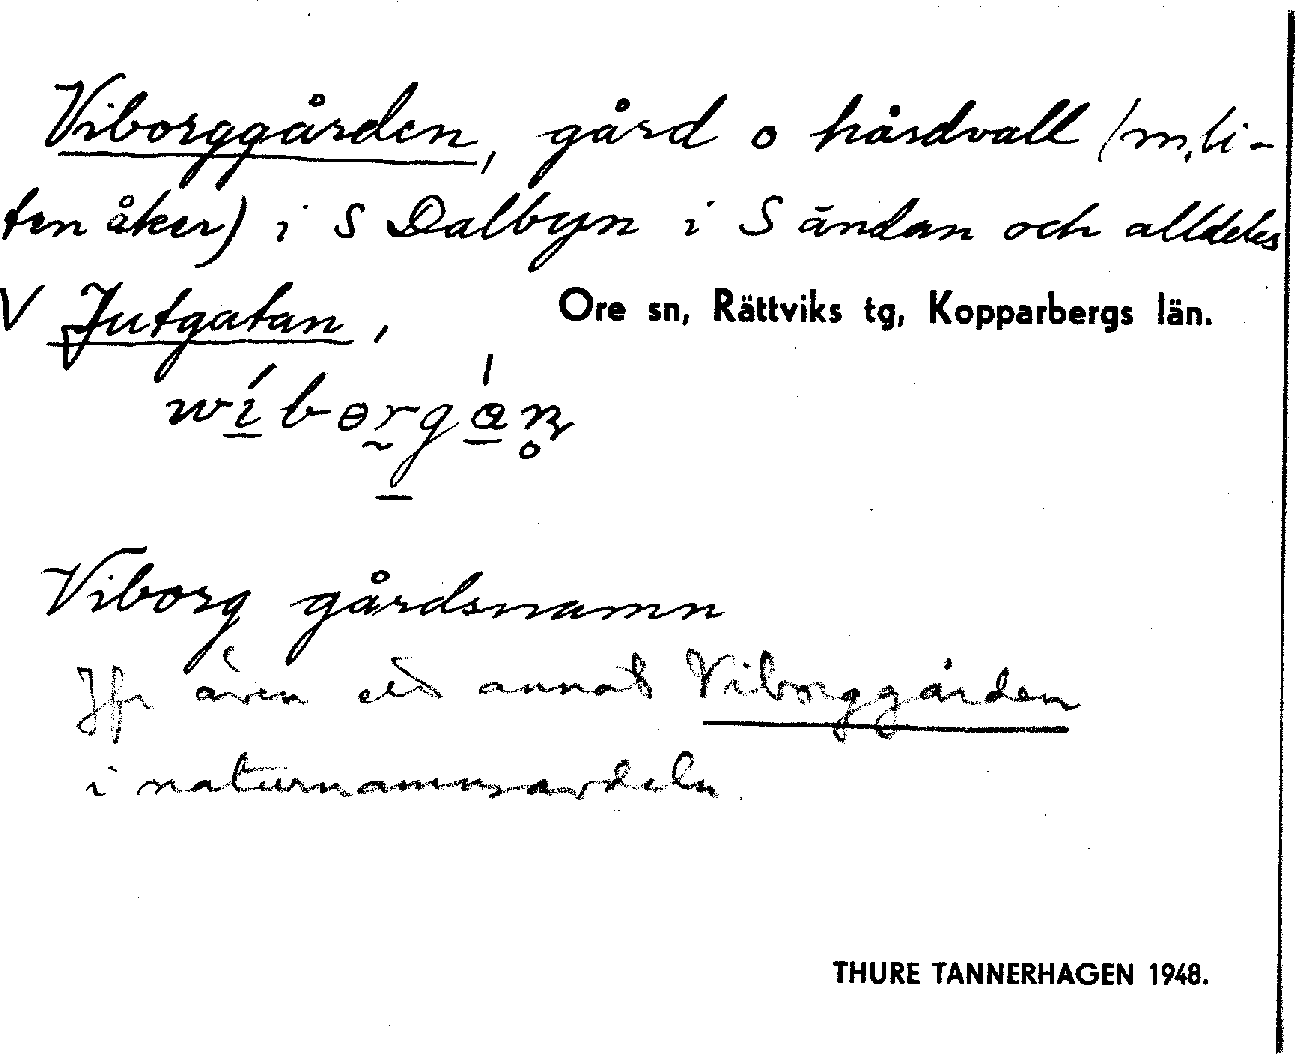 Viborggården, gård o hårdvall (m. li-
ten åker) i S Dalbyn i S ändan och alldeles
V Jutgatan,
Ore sn, Rättviks tg, Kopparbergs län.
Viborg gårdsnamn
Jfr även ett annat Viborggården
i naturnamnsavdeln.
THURE TANNERHAGEN 1948.